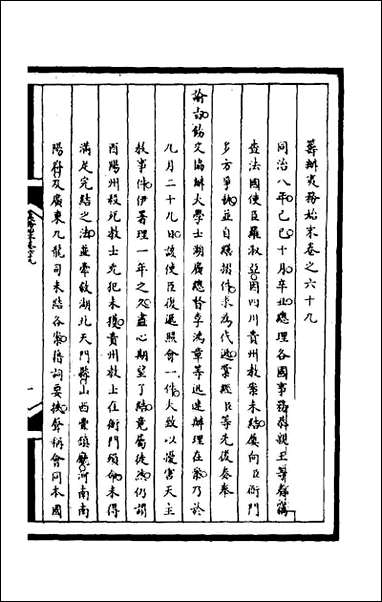 籌辦夷務始末卷之六十九
同治八年己巳十月辛丑總理各國事務恭親王等奏稱
查法國使臣羅淑亞因四川貴州教案未結屢向臣衙門
多方爭執並自繕摺件求為代遞業經臣等先後奏奉
諭旨飭交協辦大學士湖廣總督李鴻章等迅速辦理在案乃於
九月二十九日該使臣復遞照會一件大致以優害天主
教事件伊等理一年之久盡心期望了結竟屬徒然仍謂
酉陽州殺死教士兇犯未獲貴州教士在衙門殞命未得
滿足完結之法並牽敘湖北天門縣山西豐鎮廳河南南
陽府及廣東九龍司未結各案藉詞要挾聲稱會同本國